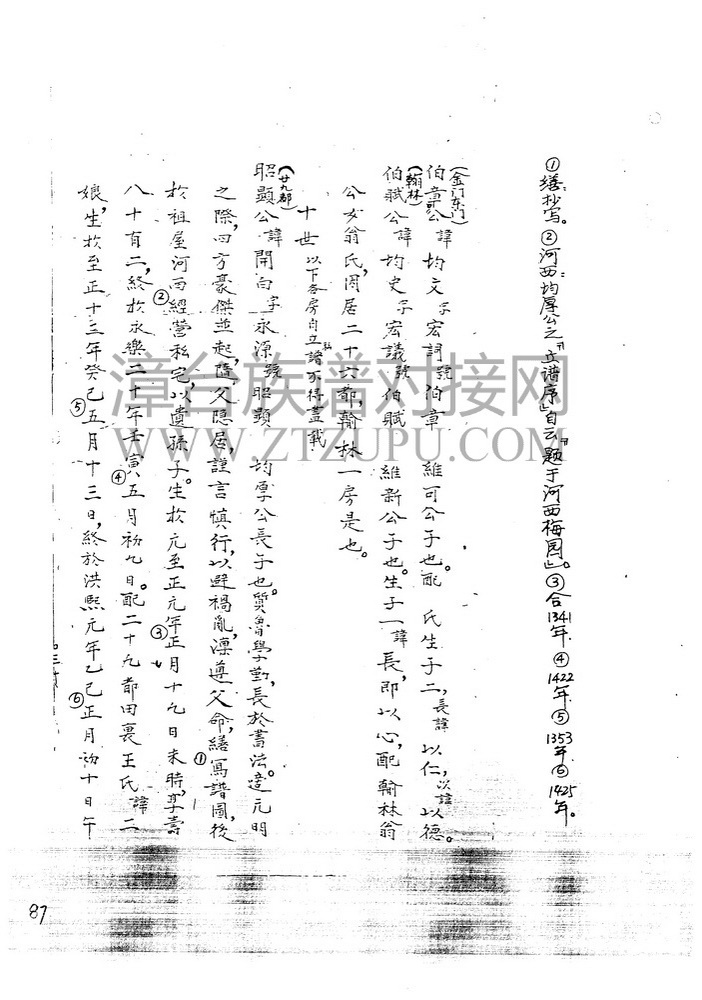 ①缮:抄写。②河西:均厚公之「立谱序」自云「题于河西梅园」。③合1341年④1422年⑤1353年⑥1425年。
(金门东门)
伯章公諱均文字宏詞號伯章 維可公子也。配 氏生子二,長諱以仁,次諱以德。
(翰林)
伯賦公諱均史字宏議號伯賦 維新公子也。生子一諱長,即以心,配翰林翁
公女翁氏,因居二十六都,翰林一房是也。
十世以下各房自立私譜不得盡載
(廿九都)
昭顯公諱開白字永源號昭顯 均厚公長子也。質魯學勤,長於書法。遭元明
之際,四方豪傑並起,隨父隐居,謹言慎行,以避禍亂,凛遵父命,繕①寫譜圖,後
於祖屋河西②經營私宅,以遺孫子。生於元至正元年③正月十九日未時,享壽
八十有二,終於永樂二十年壬寅④五月初九日。配二十九都田裏王氏諱二
娘,生於至正十三年癸巳⑤五月十三日,終於洪熙元年乙巳⑥正月初十日午
87
漳台族谱对接网
WWW.ZTZUPU.COM